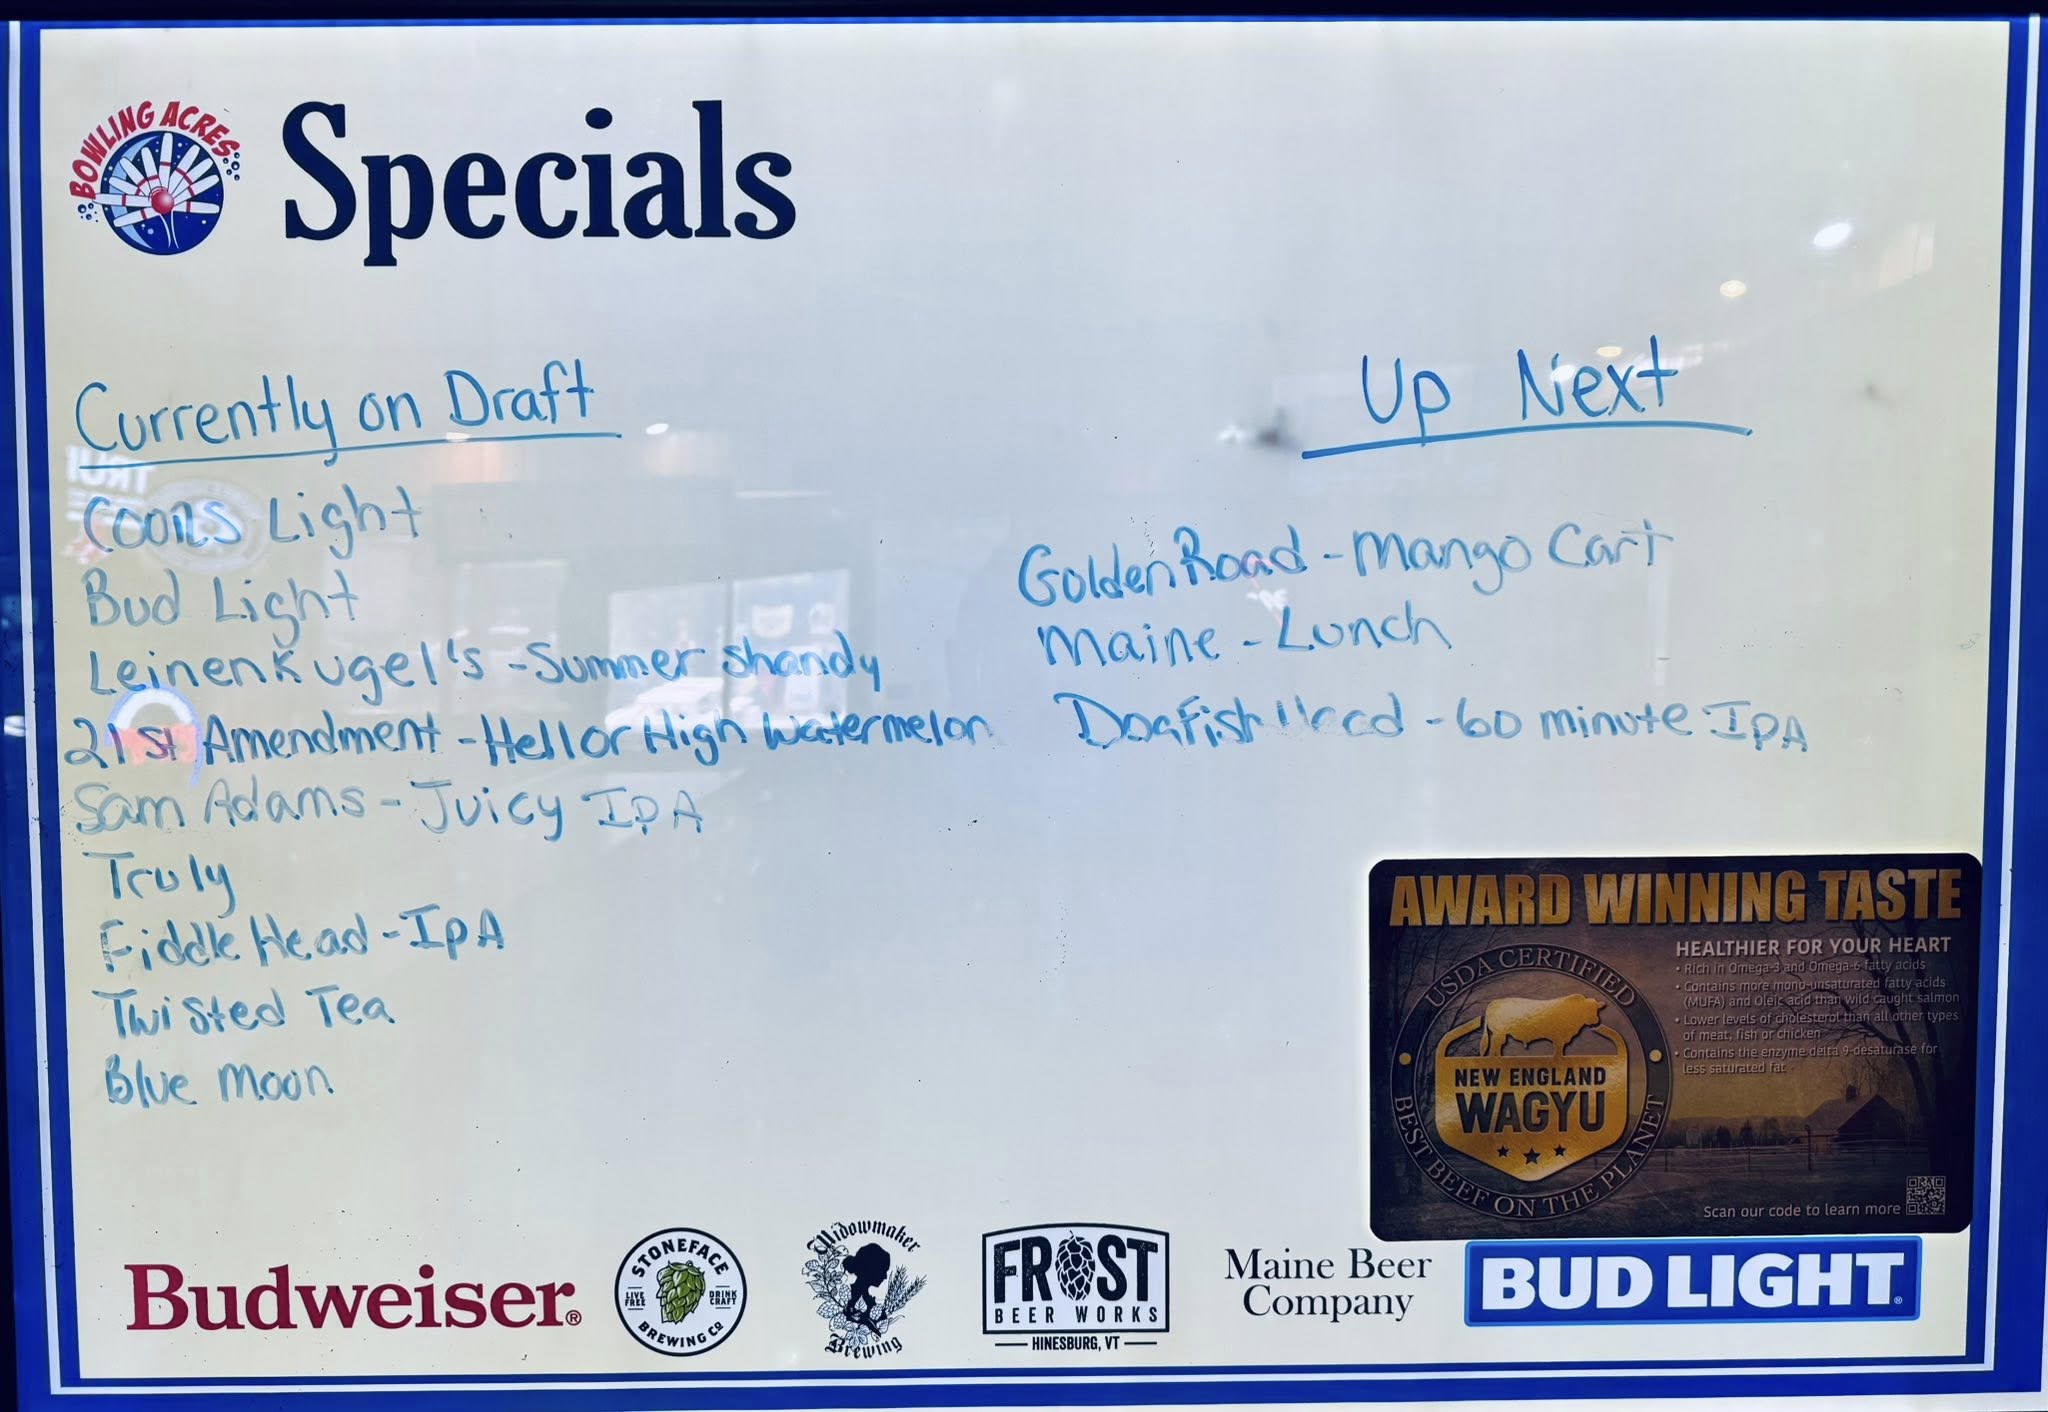 BOWLING ACRES
Specials
Currently on Draft
Coors Light
Bud Light
Leinenkugel's - Summer Shandy
21st Amendment - Hell or High Watermelon
Sam Adams - Juicy IPA
Truly
Fiddle Head - IPA
Twisted Tea
Blue Moon
Up Next
Golden Road - Mango Cart
Maine - Lunch
Dogfish Head - 60 minute IPA
AWARD WINNING TASTE
HEALTHIER FOR YOUR HEART
• Rich in Omega-3 and Omega-6 fatty acids
• Contains more mono-unsaturated fatty acids
(MUFA) and Oleic acid than wild caught salmon
• Lower levels of cholesterol than all other types
of meat, fish or chicken
• Contains the enzyme delta 9-desaturase for
less saturated fat
USDA CERTIFIED
NEW ENGLAND
WAGYU
BEST BEEF ON THE PLANET
Scan our code to learn more
Budweiser®
STONEFACE
LIVE FREE
DRINK CRAFT
BREWING CO
Widowmaker
Brewing
FROST
BEER WORKS
HINESBURG, VT
Maine Beer
Company
BUD LIGHT